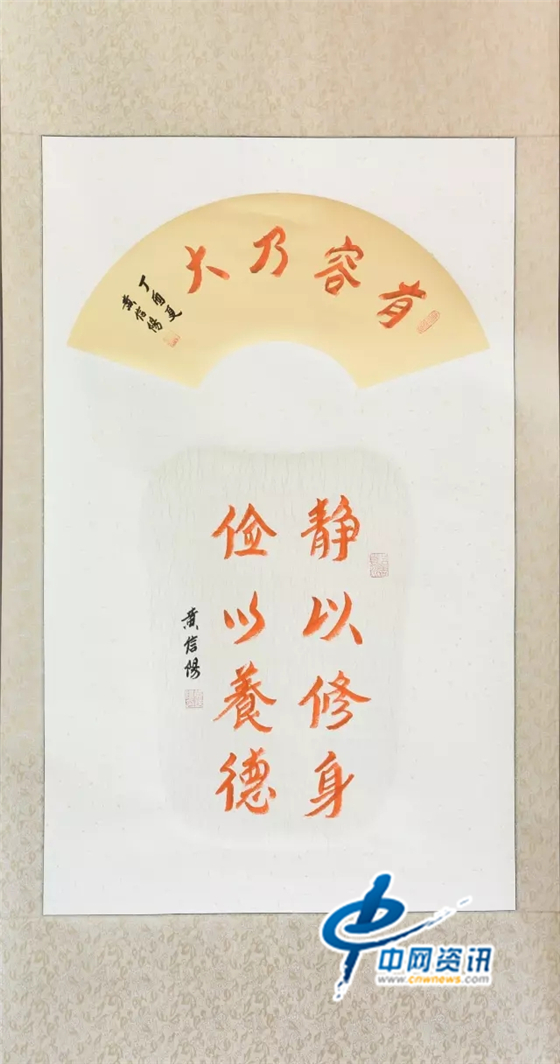 有容乃大
丁酉夏
黄信陽
静以修身
俭以養德
黄信陽
中网资讯
www.cnwnews.com